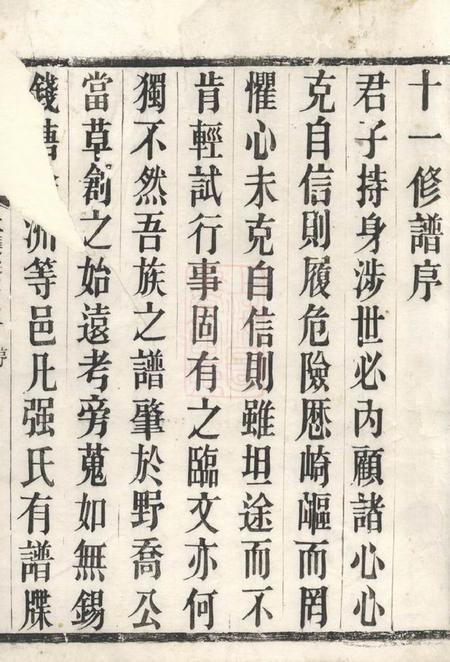 十一修譜序
君子持身涉世必內顧諸心心
克自信則履危險歷崎嶇而罔
懼心未克自信則雖坦途而不
肯輕試行事固有之臨文亦何
獨不然吾族之譜肇於野喬公
當草創之始遠考旁蒐如無錫
錢塘 洲等邑凡强氏有譜牒
序